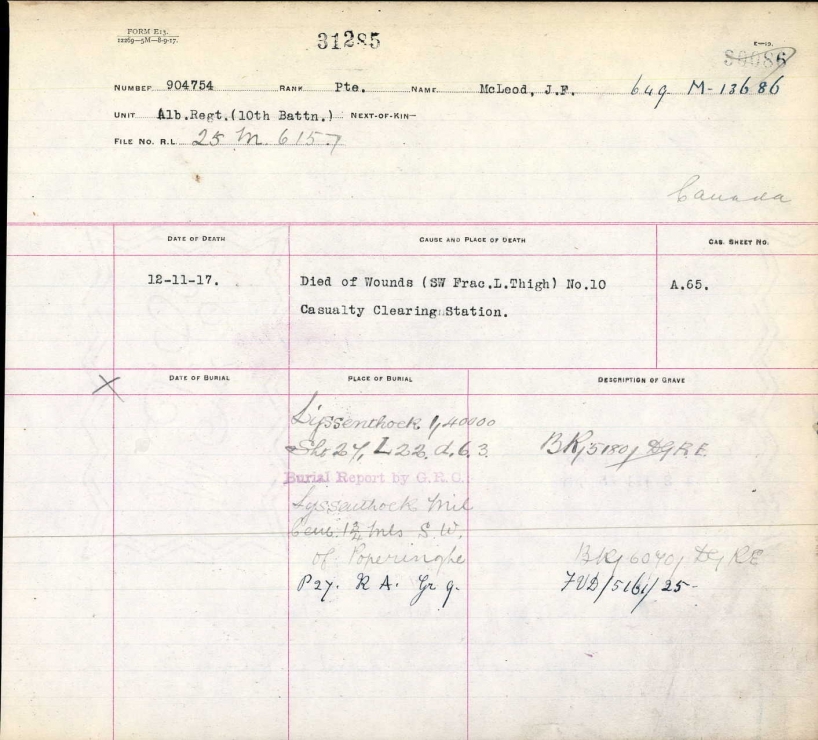 FORM E13.
12269—5M—8-9-17.
31285
E—13.
30086
NUMBER 904754 RANK Pte. NAME McLeod, J.F. 649 M-13686
UNIT Alb.Regt.(10th Battn.) NEXT-OF-KIN—
FILE NO. R.L. 25 M. 6157
Canada
DATE OF DEATH CAUSE AND PLACE OF DEATH CAS. SHEET NO.
12-11-17. Died of Wounds (SW Frac.L.Thigh) No.10 A.65.
Casualty Clearing Station.
X DATE OF BURIAL PLACE OF BURIAL DESCRIPTION OF GRAVE
Lijssenthoek 1/40000
Sht 27, L 22. d. 6. 3. BR/5180/
Burial Report by G.R.C.
Lyssenthoek Mil
Cem. 1¾ mls S.W.
of Poperinghe 6070/
P 27. R A. Gr 9. FVD/5161/25-